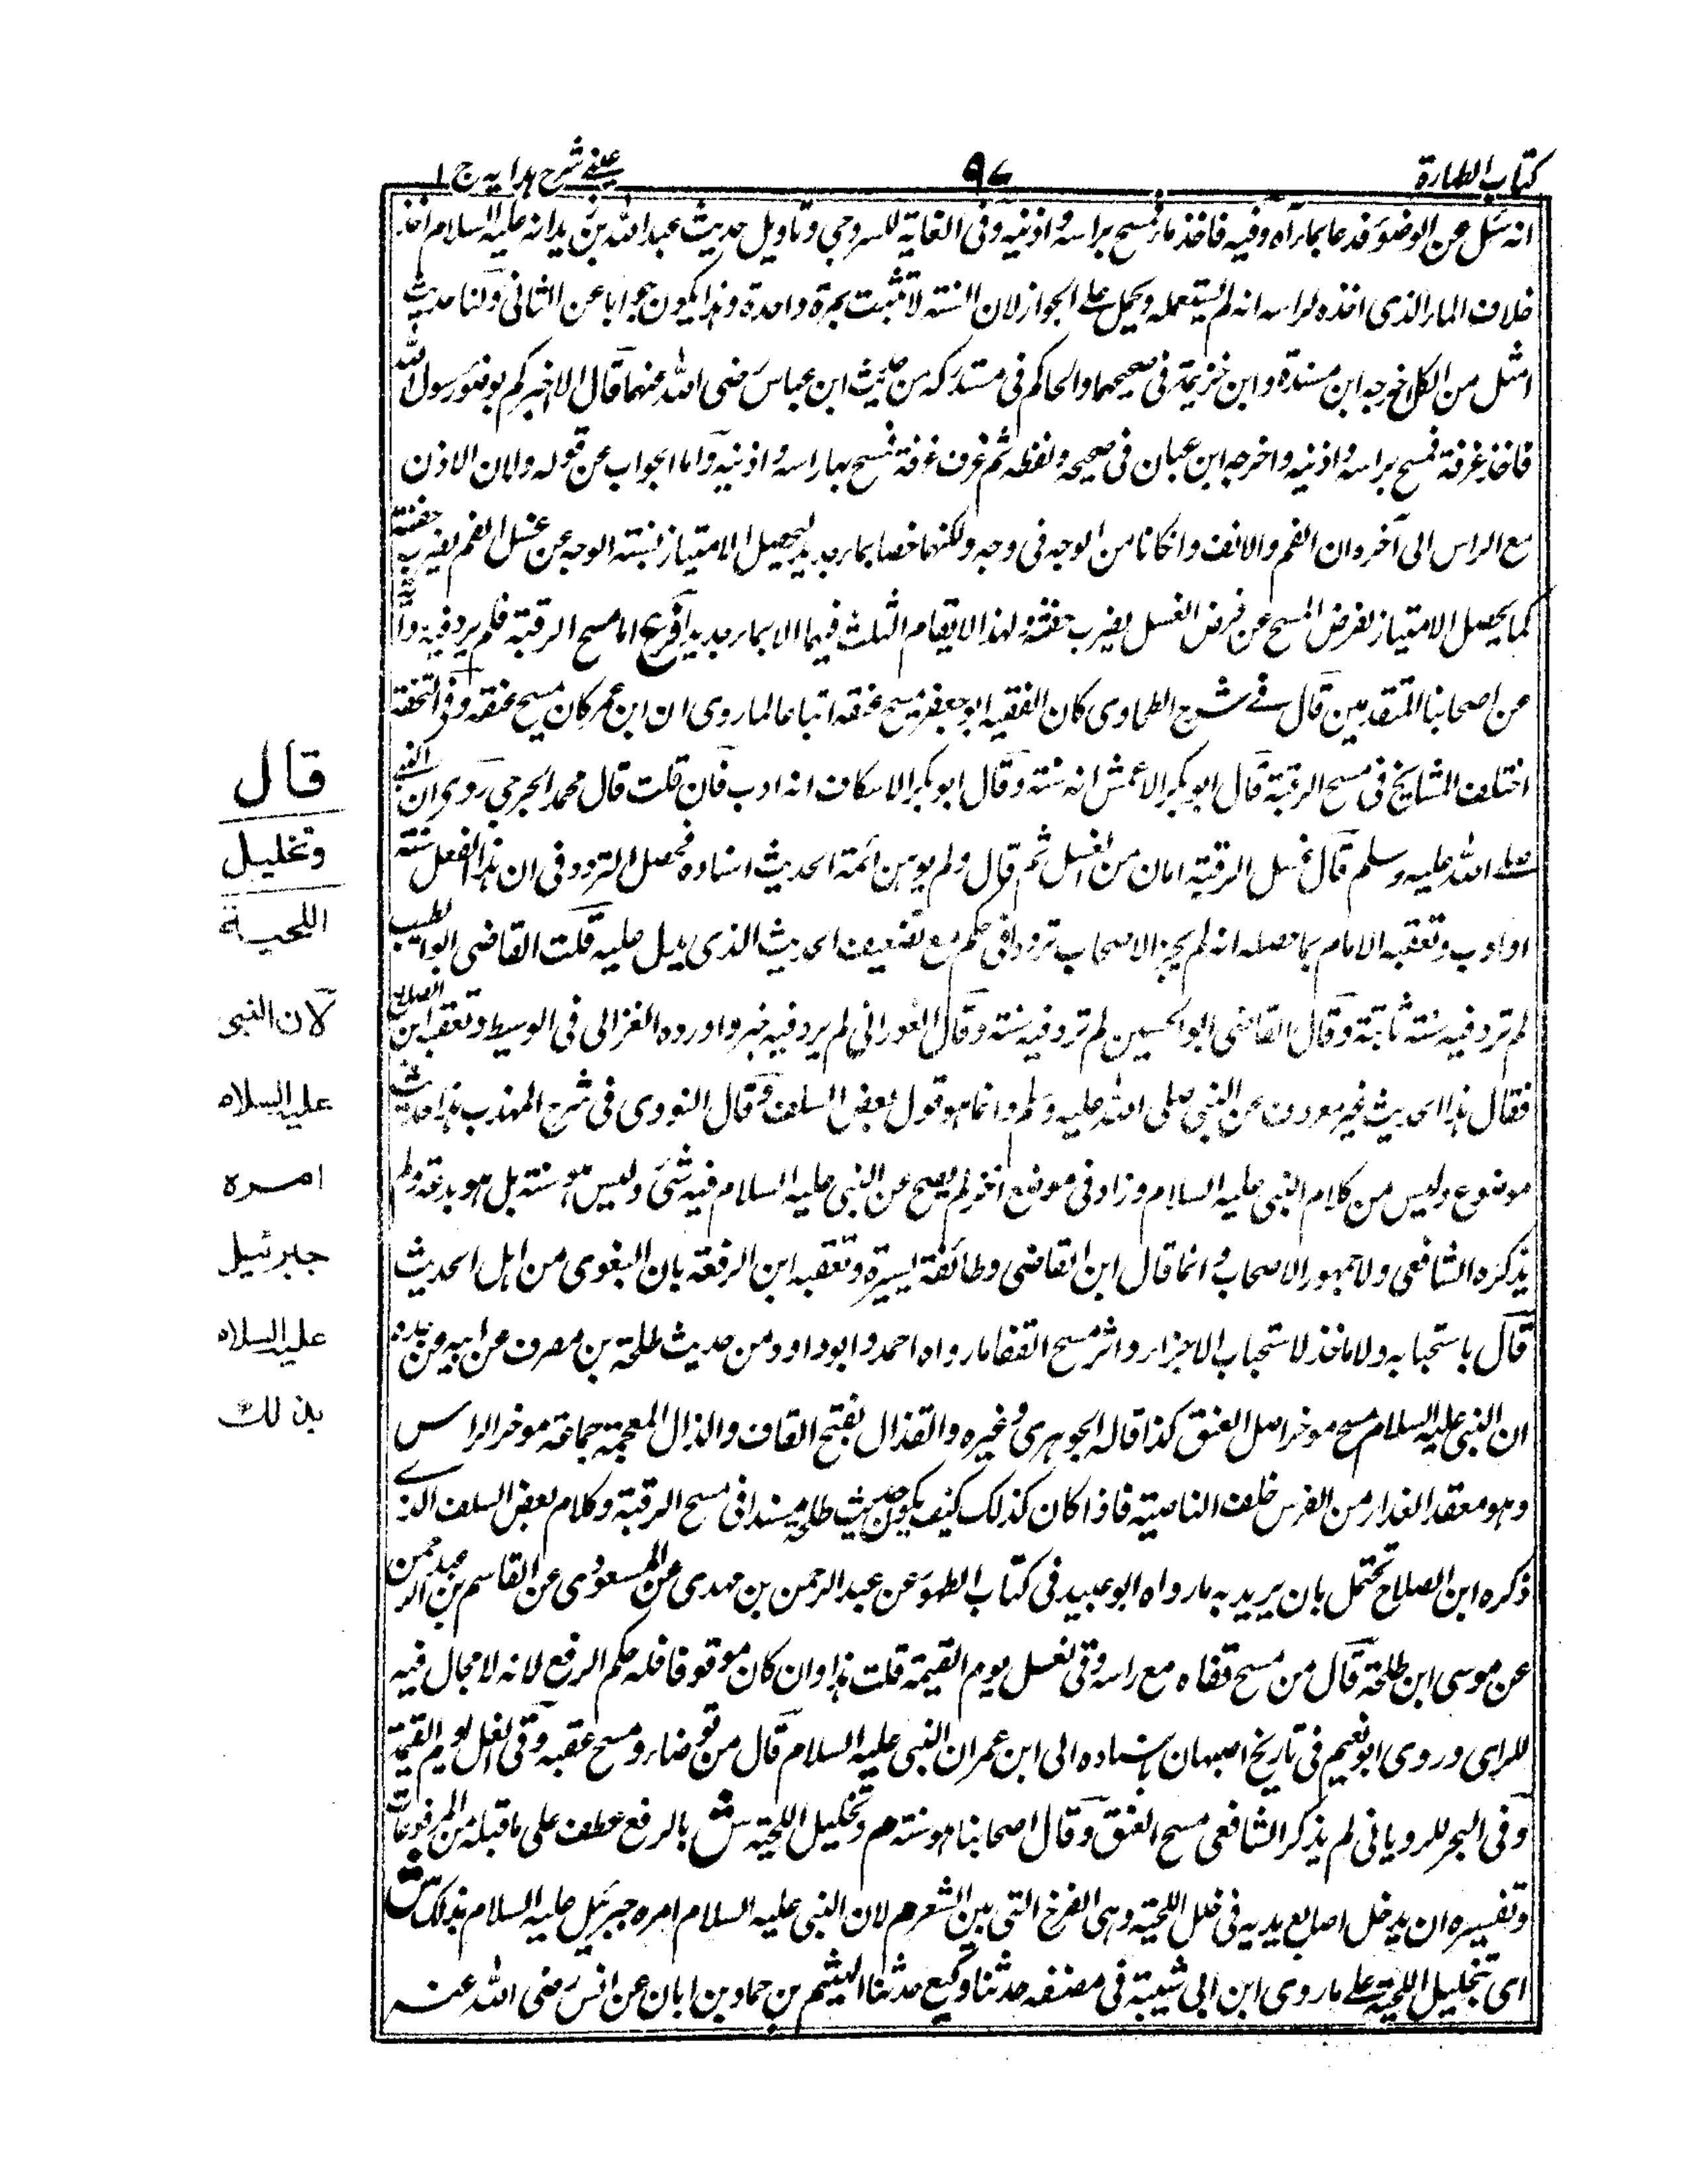 كتاب الطهارة
٩٧
عینے شرح ہدایہ ج ١
انه سئل عن الوضوء فدعا بماء رآه وفيه فاخذ ماء فمسح براسه واذنيه وفى الغاية للسروجى وتاويل حديث عبد الله بن زيد انه عليه السلام اخذ
خلاف الماء الذى اخذه لراسه انه لم يستعمله ويحمل على الجواز لان السنته لا تثبت بمرة واحدة وهذا يكون جوابا عن الثانى ولنا حديث
امثل من الكل اخرجه ابن مندة وابن خزيمة فى صحيحهما والحاكم فى مستدركه من حديث ابن عباس رضى الله عنهما قال الا اخبركم بوضوء رسول الله
فاخذ غرفة فمسح براسه واذنيه واخرجه ابن حبان فى صحيحه ولفظه ثم غرف غرفة فمسح بها راسه واذنيه واما الجواب عن قوله ولان الاذن
مع الراس الى آخره ان الفم والانف وان كانا من الوجه فى وجه ولكنهما خصا بماء جديد ليحصل الامتياز بسنته الوجه عن غسل الفم بضرب حقيقة
كما يحصل الامتياز بفرض المسح عن فرض الغسل بضرب حقيقة ولهذا لا يقام الثلث فيهما الا بماء جديد فرع اما مسح الرقبة فلم يرد فيه
من اصحابنا المتقدمين قال فے شرح الطحاوى كان الفقيه ابو جعفر يمسح عنقه اتباعا لما روى ان ابن عمر كان يمسح عنقه وفى التحفة
اختلف المشايخ فى مسح الرقبة قال ابو بكر الاعمش انه سنته وقال ابو بكر الاسكاف انه ادب فان قلت قال محمد الجرمى روى ان النبے
صلے الله عليه وسلم قال غسل الرقبة امان من الغل ثم قال ولم يومن ائمة الحديث اسناده فحصل التردد فى ان هذا الفعل سنته
او ادب وتعقبه الامام بما حصله انه لم يجز الاصحاب ترددا فى حكم مع تضعيف الحديث الذى يدل عليه قلت القاضى ابو الطيب
لم ترد فيه سنته ثابتة وقال القاضى ابو الحسين لم ترد فيه سنته وقال الفورانى لم يرد فيه خبر واورده الغزالى فى الوسيط وتعقبه ابن الصلاح
فقال هذا الحديث غير معروف عن النبى صلى الله عليه وسلم وانما هو قول بعض السلف وقال النووى فى شرح المهذب هذا حديث
موضوع وليس من كلام النبى عليه السلام وزاد فى موضع آخر لم يصح عن النبى عليه السلام فيه شئ وليس هو سنته بل هو بدعة ولم
يذكره الشافعى ولا جمهور الاصحاب وانما قال ابن القاضى وطائفة يسيرة وتعقبه ابن الرفعة بان البغوى من اهل الحديث
قال باستحبابه ولا ماخذ لاستحبابه الا خبر او اثر مسح القفا ما رواه احمد وابو داود من حديث طلحة بن مصرف عن ابيه عن جده
ان النبى عليه السلام مسح موخر اصل العنق كذا قاله الجوهرى وغيره والقذال بفتح القاف والذال المعجمة جماعة موخر الراس
وهو معقد العذار من الفرس خلف الناصية فاذا كان كذلك كيف يكون حديث طلحة مسندا فى مسح الرقبة وكلام بعض السلف الذے
ذكره ابن الصلاح تحتمل بان يريد به ما رواه ابو عبيد فى كتاب الطهور عن عبد الرحمن بن مهدى عن المسعودى عن القاسم بن عبد الرحمن
عن موسى ابن طلحة قال من مسح قفاه مع راسه وقى الغسل يوم القيمة قلت هذا وان كان موقوفا فله حكم الرفع لانه لا مجال فيه
للراى وروى ابو نعيم فى تاريخ اصبهان باسناده الى ابن عمر ان النبى عليه السلام قال من توضاء ومسح عنقه وقى الغل يوم القيمة
وفى البحر للرويانى لم يذكر الشافعى مسح العنق وقال اصحابنا هو سنته م وتخليل اللحية ش بالرفع عطف على ما قبله من المرفوعات
وتفسيره ان يدخل اصابع يديه فى خلل اللحية وهى الفرج التى بين الشعر م لان النبى عليه السلام امره جبرئيل عليه السلام بذلك ش
اى بتخليل اللحية علے ما روى ابن ابى شيبة فى مصنفه حدثنا وكيع حدثنا الهيثم بن حماد بن ابان عن انس رضى الله عنه
قال
وتخليل
اللحية
لان النبى
عليه السلام
امره
جبرئيل
عليه السلام
بذلك